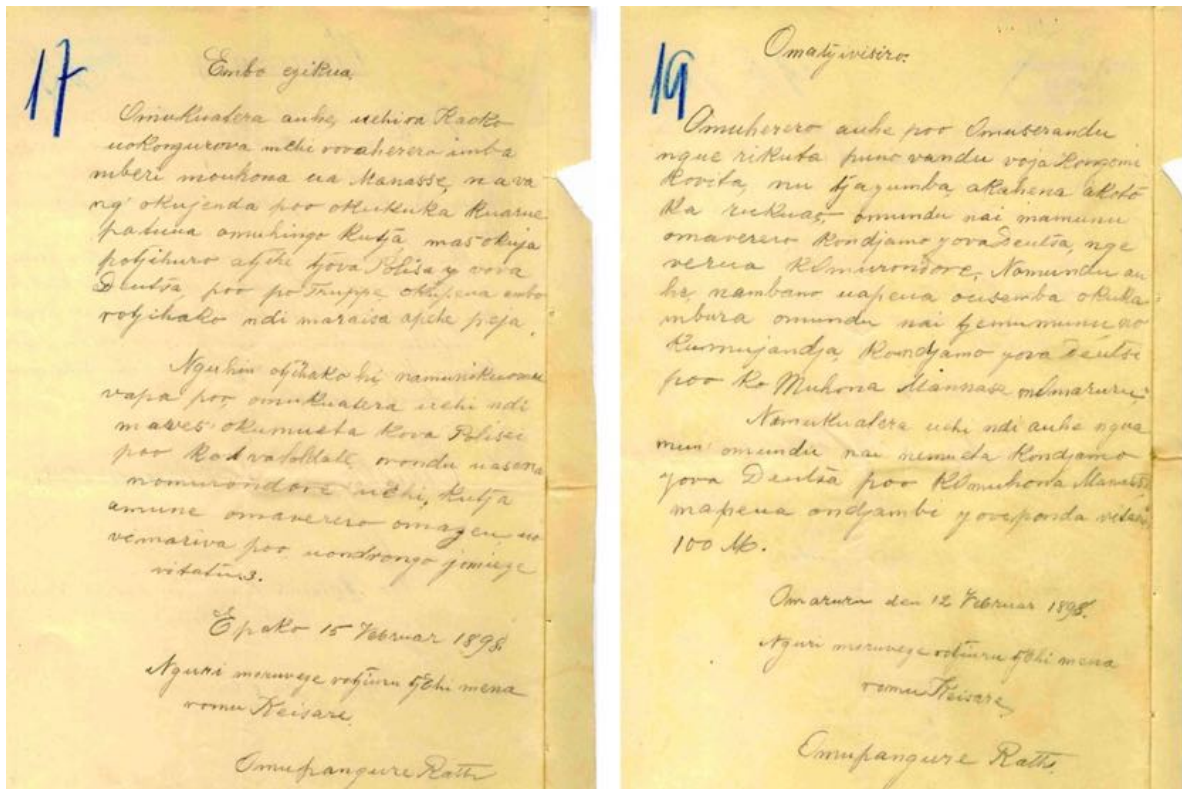 17
Embo ezikua.
Omukuatera auhe, uehi ra Kaoko
uokongurova mehi rovaherero imba
mberi mouhona ua Manasse, nava
ng' okujenda poo okukuka kuarue
patuua omuhingo kutja, mas okuja
potjihuro atjihe tjova Polisa y vova
Deutsa, poo po Truppe, okupeua embo
rotjihako ndi maraisa apehe peja.
Nguhin otjihako hi namunikuomu
vapa poo, omukuatera uehi ndi
maves' okumueta kova Polisei
poo
orondu uasena
nomurondore uehi, kutja
amune omaverero omazeu, uo
vemariva poo uondrongo jomieze
vitatu 3.
Epako 15 Februar 1898.
Nguri moruveze rotjiuru tjehi mena
romu Keisare.
Omupangure Rath
19
Omatjivisiro.
Omuherero auhe poo Omuserandu
ngue rikuta puno vandu voja Hongomi
kovita, nu tja yumba, akahena akoto
ka rukuao, omundu nai mamunu
omaverero kondjamo yova Deutsa, nge
verua komurondore, Nomundu au
he, nambano uapeua ousemba okuka
mbura omundu nai tjemumunu, no
kumujandja, kondjamo yova Deutse
poo ko Muhona Mannase mOmaruru.
Nomukuatera uehi ndi auhe ngua
mun' omundu nai nemueta kondjamo
yova Deutsa poo kOmuhona Manasse
mapeua ondjambi y oveponda
100 M.
Omaruru den 12 Februar 1898.
Nguri moruveze rotjiuru tjehi mena
romu Keisare,
Omupangure Rath.